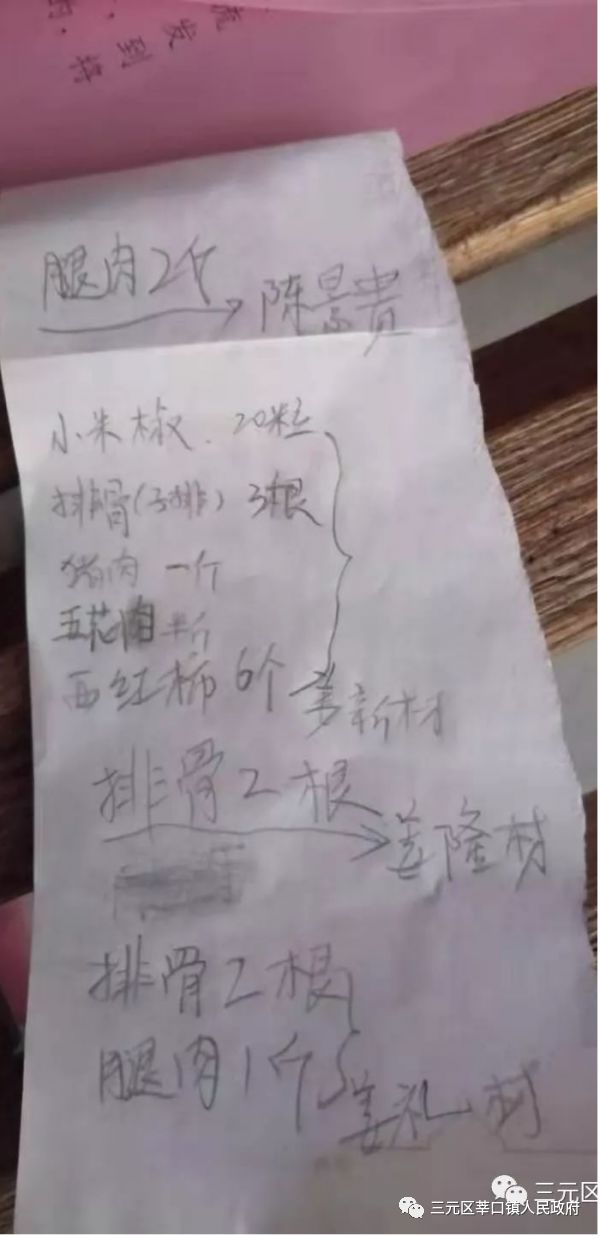 腿肉2斤 → 陈景贵
小米椒. 20粒
排骨(子排) 3根
猪肉 一斤
五花肉 半斤
西红柿 6个 → 姜新材
排骨2根 → 姜隆材
排骨2根
腿肉1斤 姜礼材
三元区
三元区莘口镇人民政府